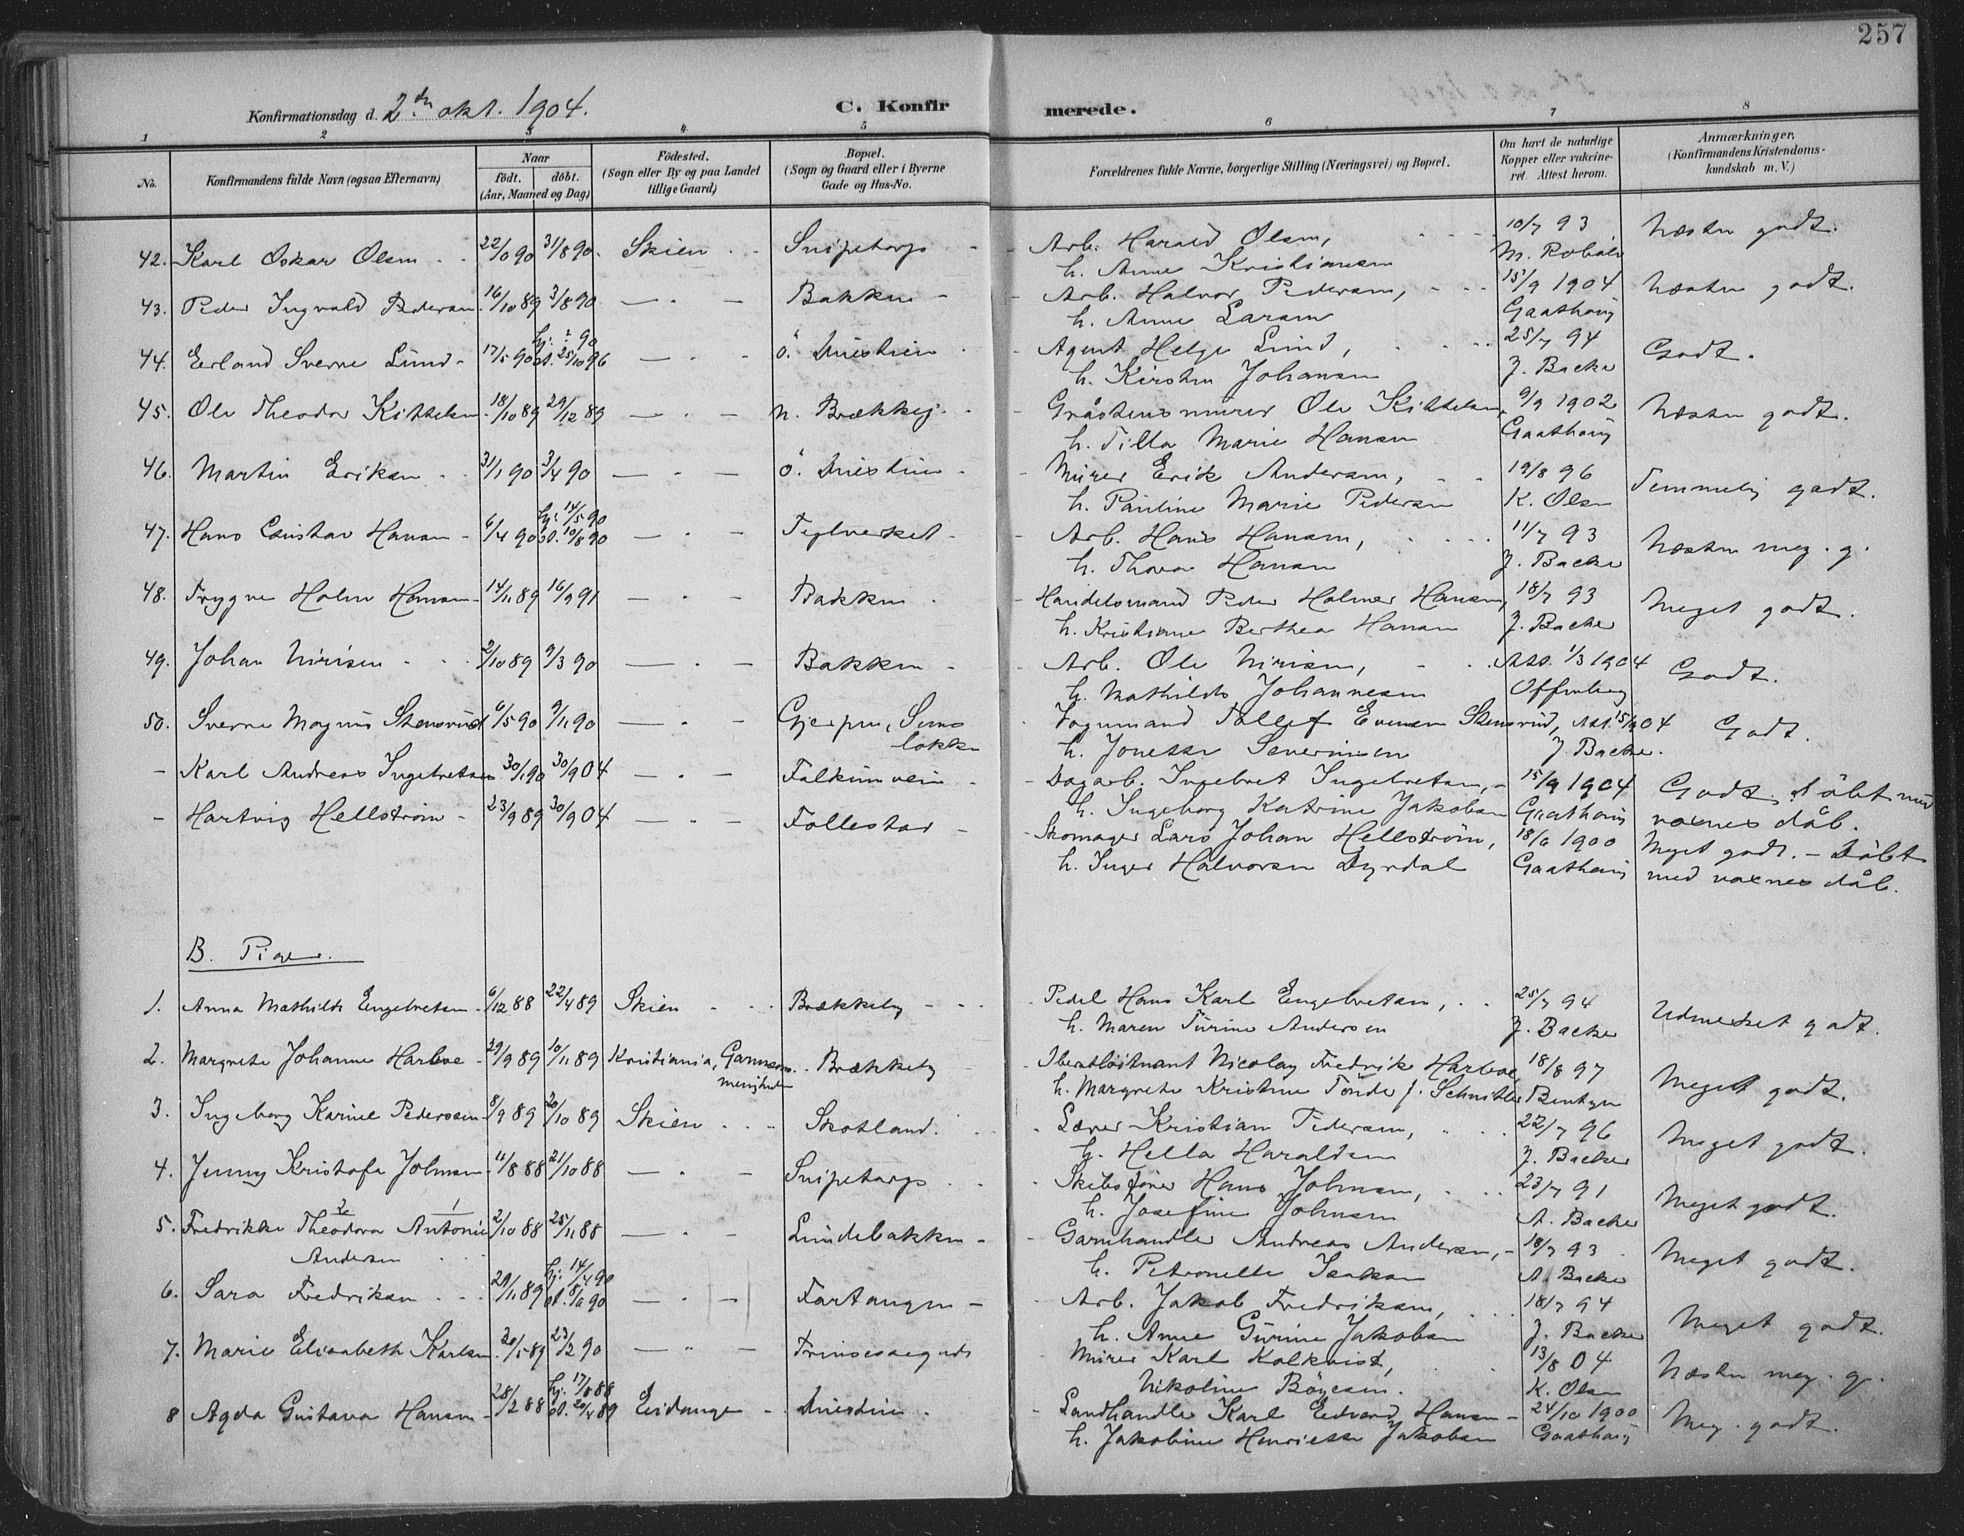 257
Konfirmationsdag d. 2den okt. 1904.
C. Konfirmerede.
1 2 3 4 5 6 7 8
No.
Konfirmandens fulde Navn (ogsaa Efternavn)
Naar
født. døbt.
(Aar, Maaned og Dag)
Fødested.
(Sogn eller By og paa Landet
tillige Gaard)
Bopæl.
(Sogn og Gaard eller i Byerne
Gade og Hus-No.
Forældrenes fulde Navne, borgerlige Stilling (Næringsvei) og Bopæl.
Om havt de naturlige
Kopper eller vakcine-
ret. Attest herom.
Anmærkninger.
(Konfirmandens Kristendoms-
kundskab m. V.)
42. Karl Oskar Olsen 31/8 90. Skien Snipetorp Arb. Harald Olsen, 10/7 93 Næsten godt.
h. Anne Kristiansen
43. Peder Ingvald Pedersen 16/10 89 3/8 90 — " — Bakken Arb. Halvor Pedersen, 15/9 1904 Næsten godt.
h. Anne Larsen Gaathaug
44. Erland Sverre Lund 17/5 90 hj. ? 90 — " — Agent Helge Lund, 25/7 94 Godt.
st. 25/10 96 h. Kirsten Johansen J. Backer
45. Ole Theodor Kittelsen 18/10 89 29/12 89 — " — n. Brækkeg. Gråstensmurer Ole Kittelsen, 9/9 1902 Næsten godt.
h. Tilla Marie Hansen Gaathaug
46. Martin Eriksen 31/1 90 3/4 90 — " — Murer Erik Andersen, 19/8 96 Temmelig godt.
h. Pauline Marie Pedersen K. Olsen
47. Hans Gustav Hansen 6/4 90 hj. 14/5 90 — " — Teglverket Arb. Hans Hansen, 11/7 93 Næsten meg. g.
st. 10/8 90 h. Thora Hansen J. Backer
48. Trygve Holm Hansen 14/11 89 16/9 91 — " — Bakken Handelsmand Peder Holmer Hansen, 18/7 93 Meget godt.
h. Kristiane Berthea Hansen J. Backer
49. Johan Nirisen 2/10 89 9/3 90 — " — Bakken Arb. Ole Nirisen, Att. 1/3 1904 Godt.
h. Mathilde Johannesen Offenberg
50. Sverre Magnus Stensrud 6/5 90 9/11 90 — " — Gjerpen, Vognmand Tollef Evensen Stensrud, Att. 15/9 04 Godt.
løkke h. Jonette Severinsen J. Backer.
- Karl Andreas Ingebretsen 30/1 90 30/9 04 — " — Falkumveien Dagarb. Ingebret Ingebretsen, 15/9 1904 Godt. Døbt med
h. Ingeborg Katrine Jakobsen Gaathaug voxnes dåb.
- Hartvig Hellstrøm 23/9 89 30/9 04 — " — Follestad Skomager Lars Johan Hellstrøm, 18/6 1900 Meget godt. – Døbt
h. Inger Halvorsen Dyrdal Gaathaug med voxnes dåb.
B. Piger.
1. Anna Mathilde Engebretsen 6/12 88 22/4 89 Skien Brækkeby Pedel Hans Karl Engebretsen, 25/7 94 Udmerket godt.
h. Maren Turine Andersen J. Backer
2. Margrete Johanne Harboe 29/9 89 10/11 89 Kristiania, Garnisons- Brækkeby Oberstløitnant Nicolay Fredrik Harboe, 18/8 97 Meget godt.
menighed h. Margrete Kristine Tønder f. Schnitler Bentzen
3. Ingeborg Karine Pedersen 8/9 89 20/10 89 Skien Skotland. Lærer Kristian Pedersen, 22/7 96 Meget godt.
h. Hella Haraldsen J. Backer
4. Jenny Kristofa Johnsen 11/8 88 21/10 88 — " — Snipetorp Skibsfører Hans Johnsen, 23/7 91 Meget godt.
h. Josefine Johnsen A. Backer
2 1
5. Fredrikke Theodora Antonie 2/10 88 25/11 88 — " — Lindebakken Garnhandler Andreas Andersen, 18/7 93 Meget godt.
Andersen h. Petronelle Isaksen A. Backer
6. Sara Fredriksen 29/11 89 hj. 14/4 90 — " — Fartangen Arb. Jakob Fredriksen, 18/7 94 Meget godt.
st. 8/6 90 h. Anne Gurine Jakobsen J. Backer
7. Marie Elisabeth Karlsen 30/5 89 23/2 90 — " — Prinsessegade Murer Karl Kolkvist, 13/8 04 Næsten meg. g.
Nikoline Bøyesen. K. Olsen
8 Agda Gustava Hansen 28/12 88 hj. 17/8 88 Eidanger Landhandler Karl Edvard Hansen 24/10 1900 Meg. godt.
st. 20/4 89 h. Jakobine Henriette Jakobsen Gaathaug